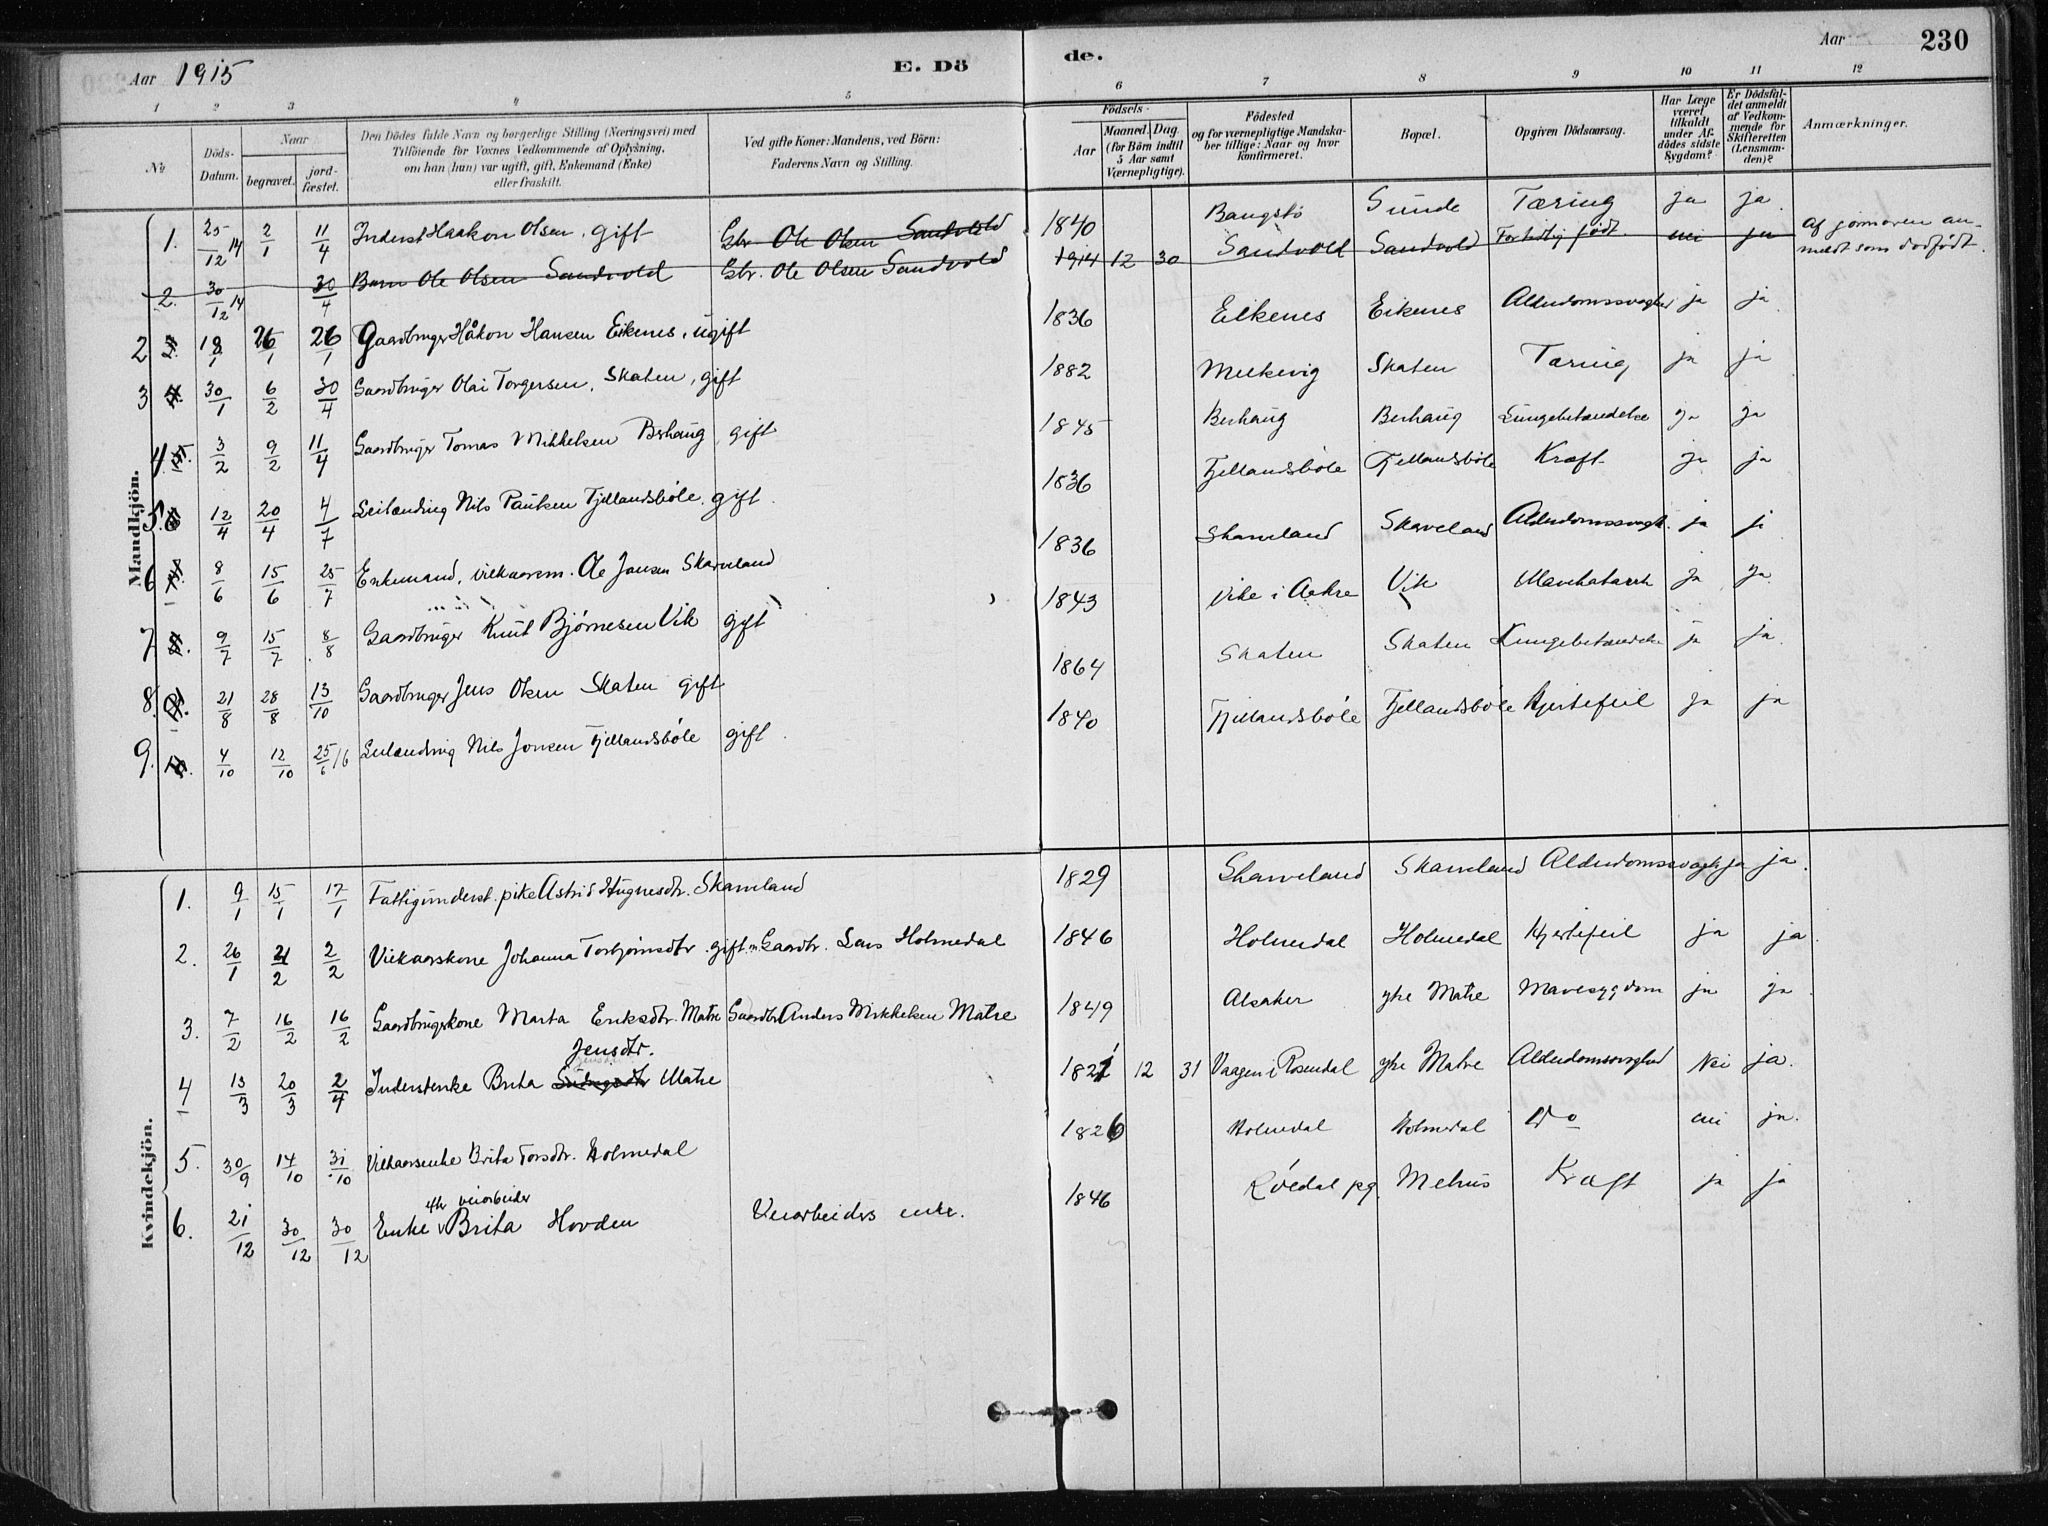 Aar 1915
E. Döde.
Aar
230
1 2 3 4 5 6 7 8 9 10 11 12
№
Döds-Datum.
Naar
begravet.
jord-fæstet.
Den Dödes fulde Navn og borgerlige Stilling (Næringsvei) med
Tilföiende för Voxnes Vedkommende af Oplysning,
om han (hun) var ugift, gift, Enkemand (Enke)
eller fraskilt.
Ved gifte Koner: Mandens, ved Börn:
Faderens Navn og Stilling.
Födsels-
Aar
Maaned. Dag.
(for Börn indtil
5 Aar samt
Værnepligtige).
Födested
og for værnepligtige Mandska-
ber tillige: Naar og hvor
konfirmeret.
Bopæl.
Opgiven Dödsaarsag.
Har Læge
været
tilkaldt
under Af-
dödes sidste
Sygdom?
Er Dödsfal-
det anmeldt
af Vedkom-
mende for
Skifteretten
(Lensman-
den)?
Anmærkninger.
Mandkjön.
1. 25/12 14 2/1 11/4 Inderst Haakon Olsen, gift Gbr Ole Olsen Sandvold 1840 Bangstö Sunde Tæring ja ja
2. 30/12 14 30/4 Barn Ole Olsen Sandvold Gbr. Ole Olsen Sandvold 1914 12 30 Sandvold Sandvold For tidlig født nei ja af gjormoren an-
meldt som dødfødt
2 3. 18/1 26/1 26/1 Gaardbruger Håkon Hansen Eikenes, ugift 1836 Eikenes Eikenes Alderdomssvaghed ja ja
3 4. 30/1 6/2 30/4 Gaardbruger Olai Torgersen, Skaten, gift 1882 Melkevig Skaten Tæring ja ja
4 5. 3/2 9/2 11/4 Gaardbruger Tomas Mikkelsen Berhaug, gift 1845 Berhaug Berhaug Lungebetændelse ja ja
5. 6 12/4 20/4 4/7 Leilænding Nils Paulsen Fjellandsböle, gift. 1836 Fjellandsböle Fjellandsböle Kræft ja ja
6 7. 8/6 15/6 25/7 Enkemand, vilkaarsm. Ole Jansen Skarveland 1836 Skarveland Skarveland Alderdomssvagh. ja ja
7 8. 9/7 15/7 8/8 Gaardbruger Knut Bjørnesen Vik gift 1843 Vike i Aakre Vik Mavekatarrh ja ja
8. 9. 21/8 28/8 13/10 Gaardbruger Jens Olsen Skaten gift 1864 Skaten Skaten Lungebetændelse ja ja
9. 10. 4/10 12/10 25/6 16 Leilænding Nils Jonsen Fjellandsböle gift. 1840 Fjellandsböle Fjellandsböle Hjertefeil ja ja
Kvindekjön.
1. 9/1 15/1 17/1 Fattigunderst. pike Astrid Hognesdtr. Skarveland 1829 Skarveland Skarveland Alderdomssvagh ja ja.
2. 26/1 2/2 2/2 Vilkaarskone Johanna Torbjørnsdtr. gift m. Gaardbr. Lars Holmedal 1846 Holmedal Holmedal Hjertefeil ja ja
3. 7/2 16/2 16/2 Gaardbrugerkone Marta Eriksdtr. Matre Gaardbr Anders Mikkelsen Matre 1849 Alsaker ytre Matre Mavesygdom ja ja
Jensdtr.
4 13/3 20/3 2/4 Inderstenke Brita Matre 1821 12 31 Vaagen i Rosendal ytre Matre Alderdomssvaghed Nei ja.
5. 30/9 14/10 31/10 Vilkaarsenke Brita Torsdtr. Holmedal 1826 Holmedal Holmedal Do nei ja.
efter veiarbeider
6. 21/12 30/12 30/12 Enke Brita Hovden Veiarbeiders enke. 1846 Röldal pg. Mehus Kræft ja ja